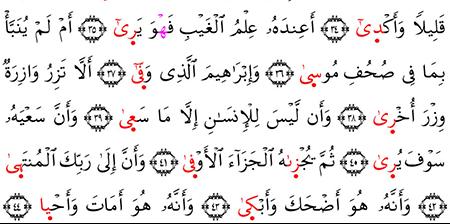 قَلِيلًا وَأَكْدَىٰٓ ﴿٣٤﴾ أَعِندَهُۥ عِلْمُ ٱلْغَيْبِ فَهُوَ يَرَىٰٓ ﴿٣٥﴾ أَمْ لَمْ يُنَبَّأْ
بِمَا فِى صُحُفِ مُوسَىٰ ﴿٣٦﴾ وَإِبْرَٰهِيمَ ٱلَّذِى وَفَّىٰٓ ﴿٣٧﴾ أَلَّا تَزِرُ وَازِرَةٌ
وِزْرَ أُخْرَىٰ ﴿٣٨﴾ وَأَن لَّيْسَ لِلْإِنسَٰنِ إِلَّا مَا سَعَىٰ ﴿٣٩﴾ وَأَنَّ سَعْيَهُۥ
سَوْفَ يُرَىٰ ﴿٤٠﴾ ثُمَّ يُجْزَىٰهُ ٱلْجَزَآءَ ٱلْأَوْفَىٰ ﴿٤١﴾ وَأَنَّ إِلَىٰ رَبِّكَ ٱلْمُنتَهَىٰ
﴿٤٢﴾ وَأَنَّهُۥ هُوَ أَضْحَكَ وَأَبْكَىٰ ﴿٤٣﴾ وَأَنَّهُۥ هُوَ أَمَاتَ وَأَحْيَا ﴿٤٤﴾